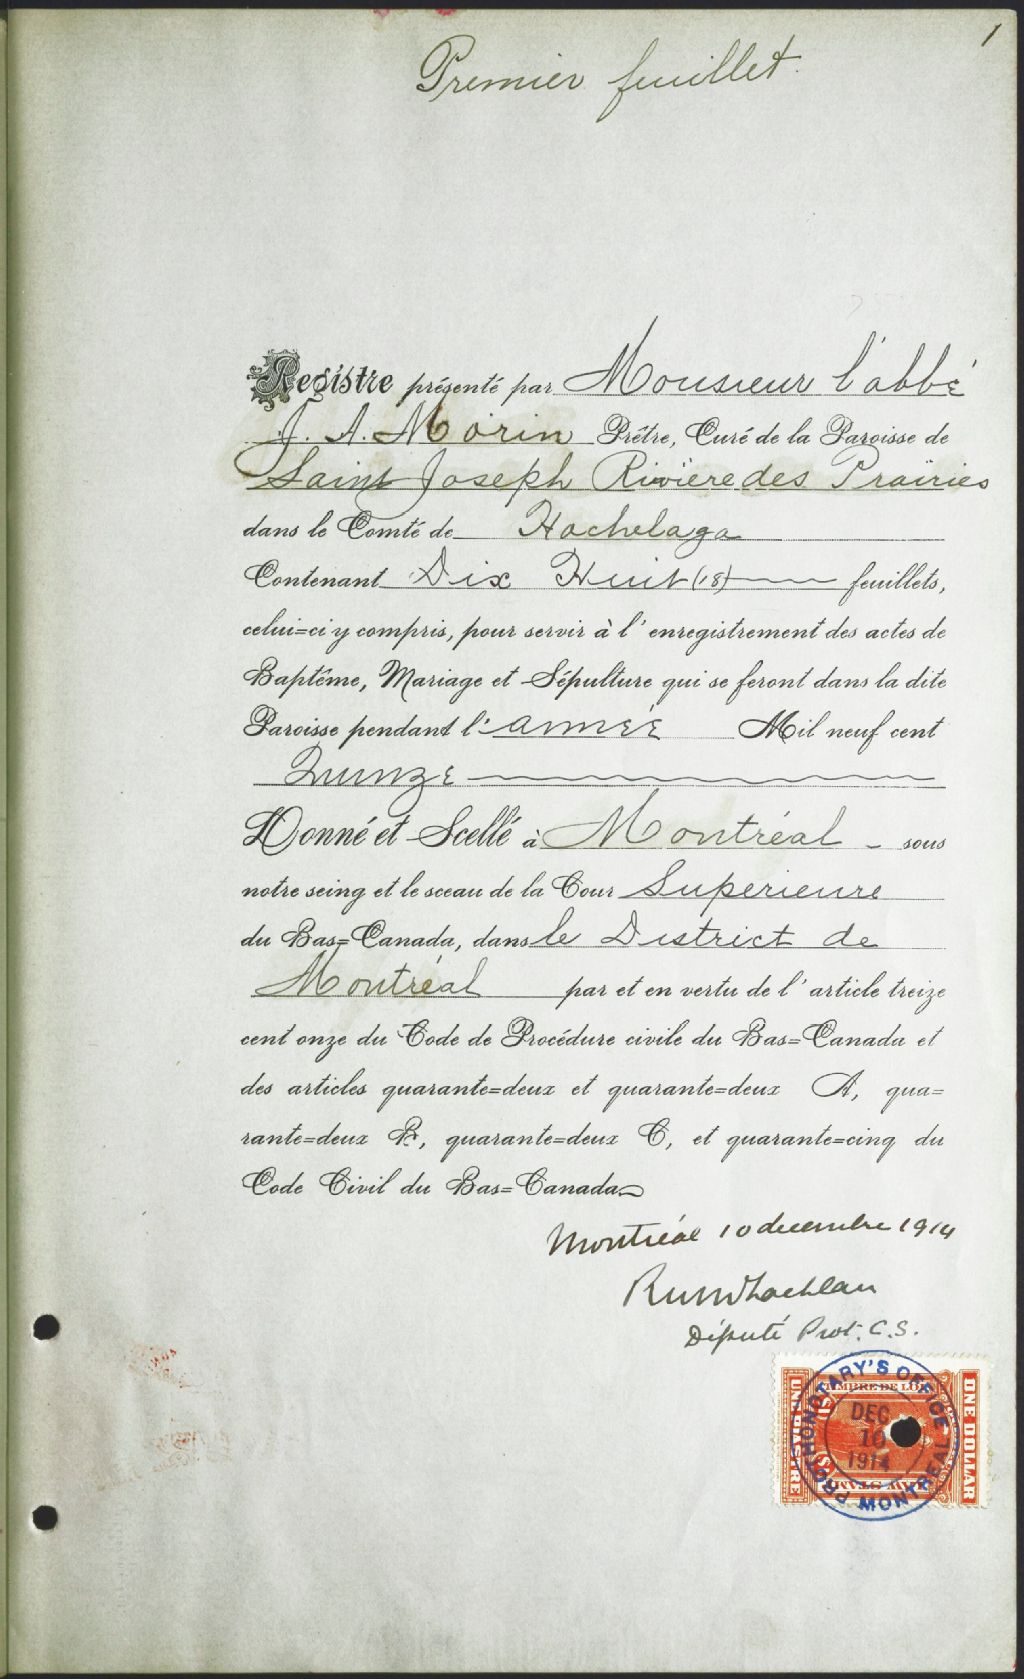 1
Premier feuillet.
Registre présenté par Monsieur l'abbé
J. A. Morin Prêtre, Curé de la Paroisse de
Saint Joseph Rivière des Prairies
dans le Comté de Hochelaga
Contenant Dix Huit (18) feuillets,
celui=ci y compris, pour servir à l'enregistrement des actes de
Baptême, Mariage et Sépulture qui se feront dans la dite
Paroisse pendant l'année Mil neuf cent
Quinze
Donné et Scellé à Montréal - sous
notre seing et le sceau de la Cour Superieure
du Bas=Canada, dans le District de
Montréal par et en vertu de l'article treize
cent onze du Code de Procédure civile du Bas=Canada et
des articles quarante=deux et quarante=deux A, qua=
rante=deux B, quarante=deux C, et quarante=cinq du
Code Civil du Bas=Canada
Montréal 10 decembre 1914
Député Prot. C.S.
PROTHONOTARY'S OFFICE
TIMBRE DE LOI
DEC
10
1914
MONTREAL
LAW STAMP
UNE PIASTRE
ONE DOLLAR